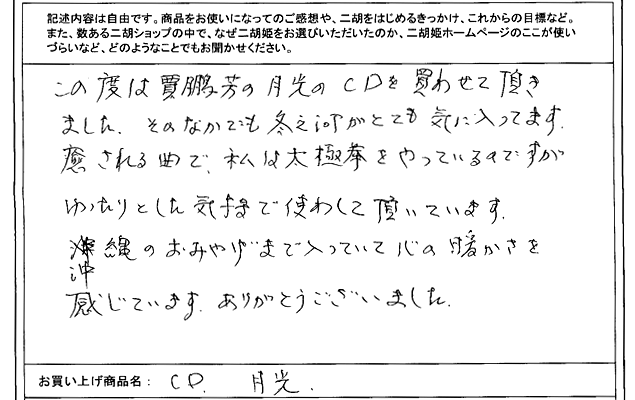 記述内容は自由です。商品をお使いになってのご感想や、二胡をはじめるきっかけ、これからの目標など。
また、数ある二胡ショップの中で、なぜ二胡姫をお選びいただいたのか、二胡姫ホームページのここが使い
づらいなど、どのようなことでもお聞かせください。
この度は賈鵬芳の月光のCDを買わせて頂き
ました。そのなかでも冬之河がとても気に入ってます。
癒される曲で、私は太極拳をやっているのですが
ゆったりとした気持で使わして頂いています。
沖縄のおみやげまで入っていて心の暖かさを
感じています。ありがとうございました。
お買い上げ商品名： CD. 月光.